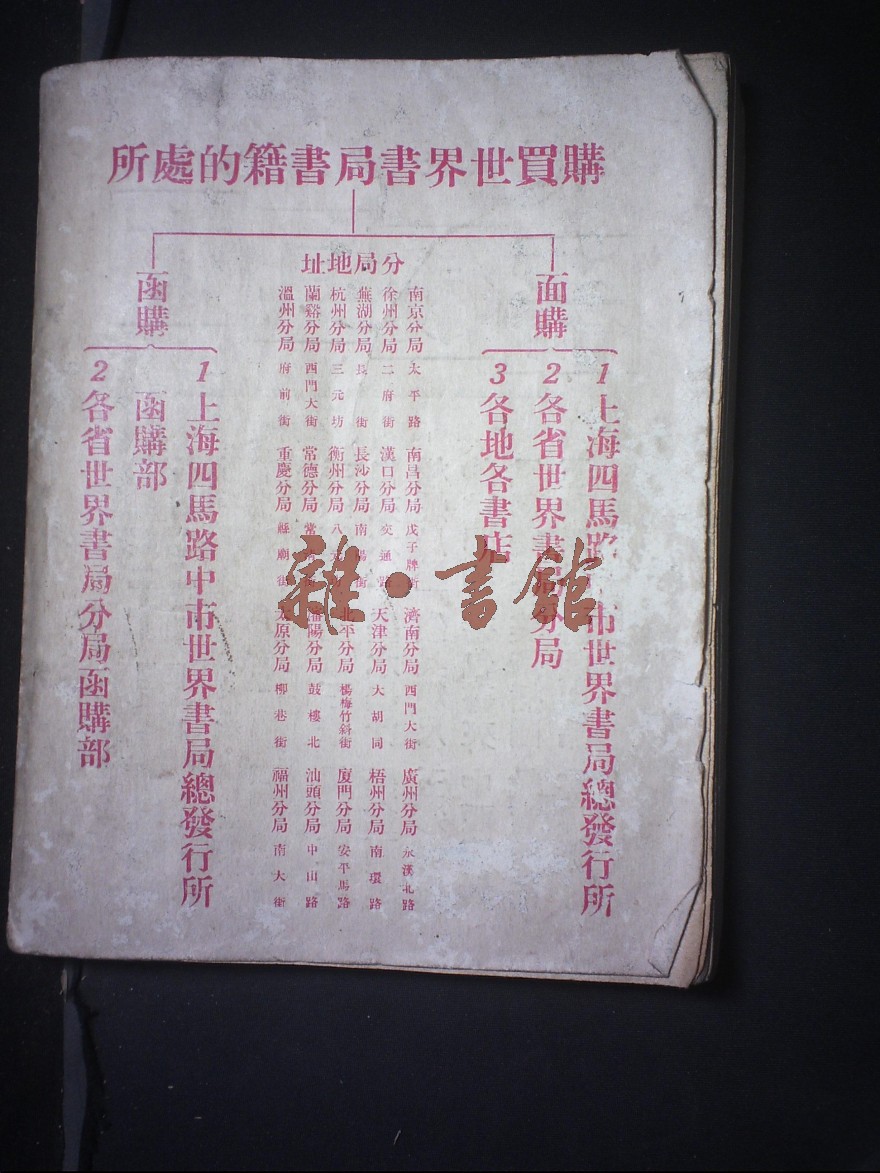 購買世界書局書籍的處所
面購
1 上海四馬路 市世界書局總發行所
2 各省世界書局分局
3 各地各書店
分局地址
南京分局 太平路 南昌分局 戊子牌街 濟南分局 西門大街 廣州分局 永漢北路
徐州分局 二府街 漢口分局 交通路 天津分局 大胡同 梧州分局 南環路
蕪湖分局 長街 長沙分局 南陽街 北平分局 楊梅竹斜街 廈門分局 安平馬路
杭州分局 三元坊 衡州分局 八元
蘭谿分局 西門大街 常德分局 常 瀋陽分局 鼓樓北 汕頭分局 中山路
溫州分局 府前街 重慶分局 縣廟街 太原分局 柳巷街 福州分局 南大街
函購
1 上海四馬路中市世界書局總發行所
函購部
2 各省世界書局分局函購部
雜·書館